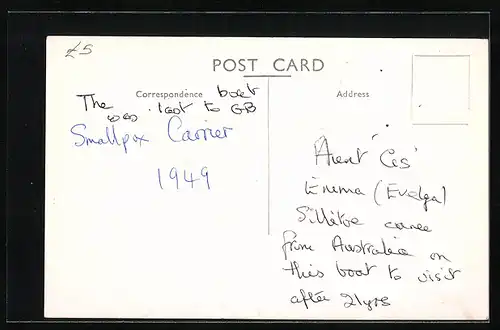 £5
POST CARD
Correspondence
Address
The boat
was last to GB
Smallpox Carrier
1949
Aunt 'Cis'
Enema (Evelga)
Sillitoe came
from Australia on
this boat to visit
after 21yrs